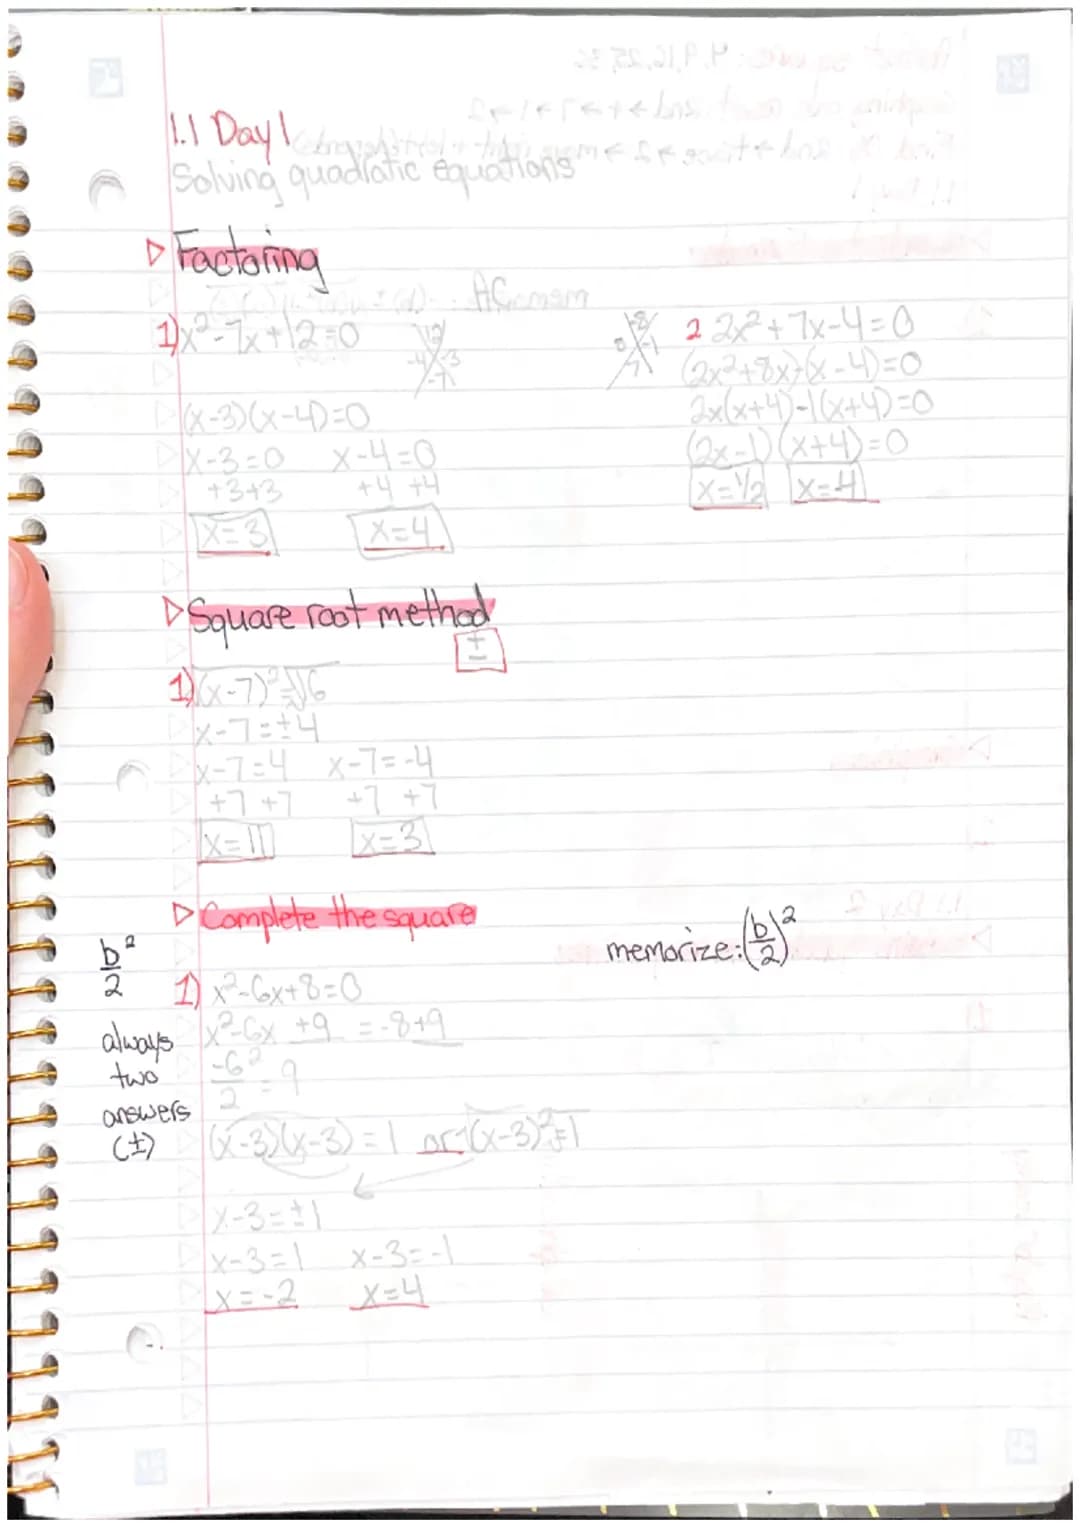 1.1 Day 1
Solving quadratic equations
▷ Factoring
1) x²-7x+12=0
12
-4 -3
-7
(x-3)(x-4)=0
x-3=0 x-4=0
+3+3 +4 +4
x=3 x=4
AC
-8
8 -1
7
2 2x²+7x-4=0
(2x²+8x)-(x-4)=0
2x(x+4)-1(x+4)=0
(2x-1)(x+4)=0
x=½ x=4
▷ Square root method
±
1) √(x-7)²=√16
x-7=±4
x-7=4 x-7=-4
+7 +7 +7 +7
x=11 x=3
▷ Complete the square
memorize: (b/2)²
b²/2
always
two
answers
(±)
1) x²-6x+8=0
x²-6x +9 = -8+9
-6²/2 = 9
(x-3)(x-3)=1 or √(x-3)²=√1
x-3=±1
x-3=1 x-3=-1
x=-2 x=4